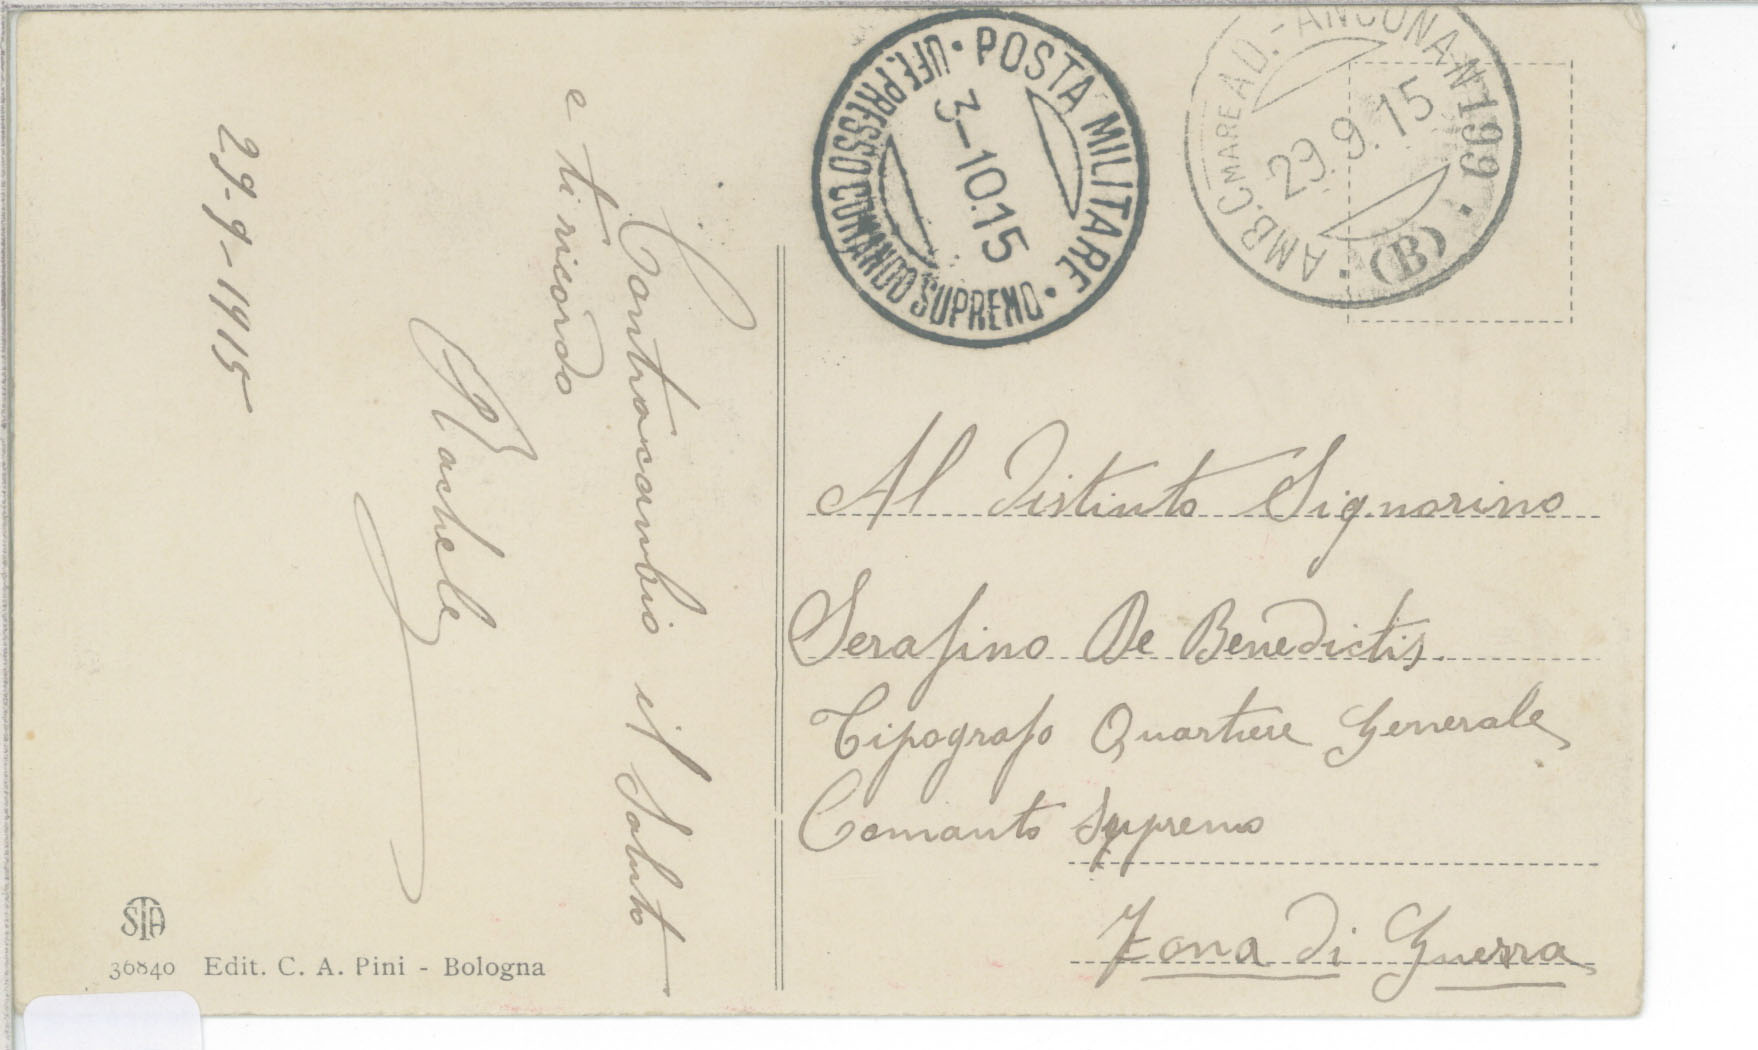 POSTA MILITARE · UFF. PRESSO COMANDO SUPREMO ·
3-10.15
AMB. C.MARE AD.-ANCONA N 199 · (B) ·
29.9.15
29-9-1915
Contraccambio il Saluto
e ti ricordo
Rachele
Al Distinto Signorino
Serafino De Benedictis.
Tipografo Quartiere Generale
Comanto Supremo
Zona di Guerra
STA
36840 Edit. C. A. Pini - Bologna